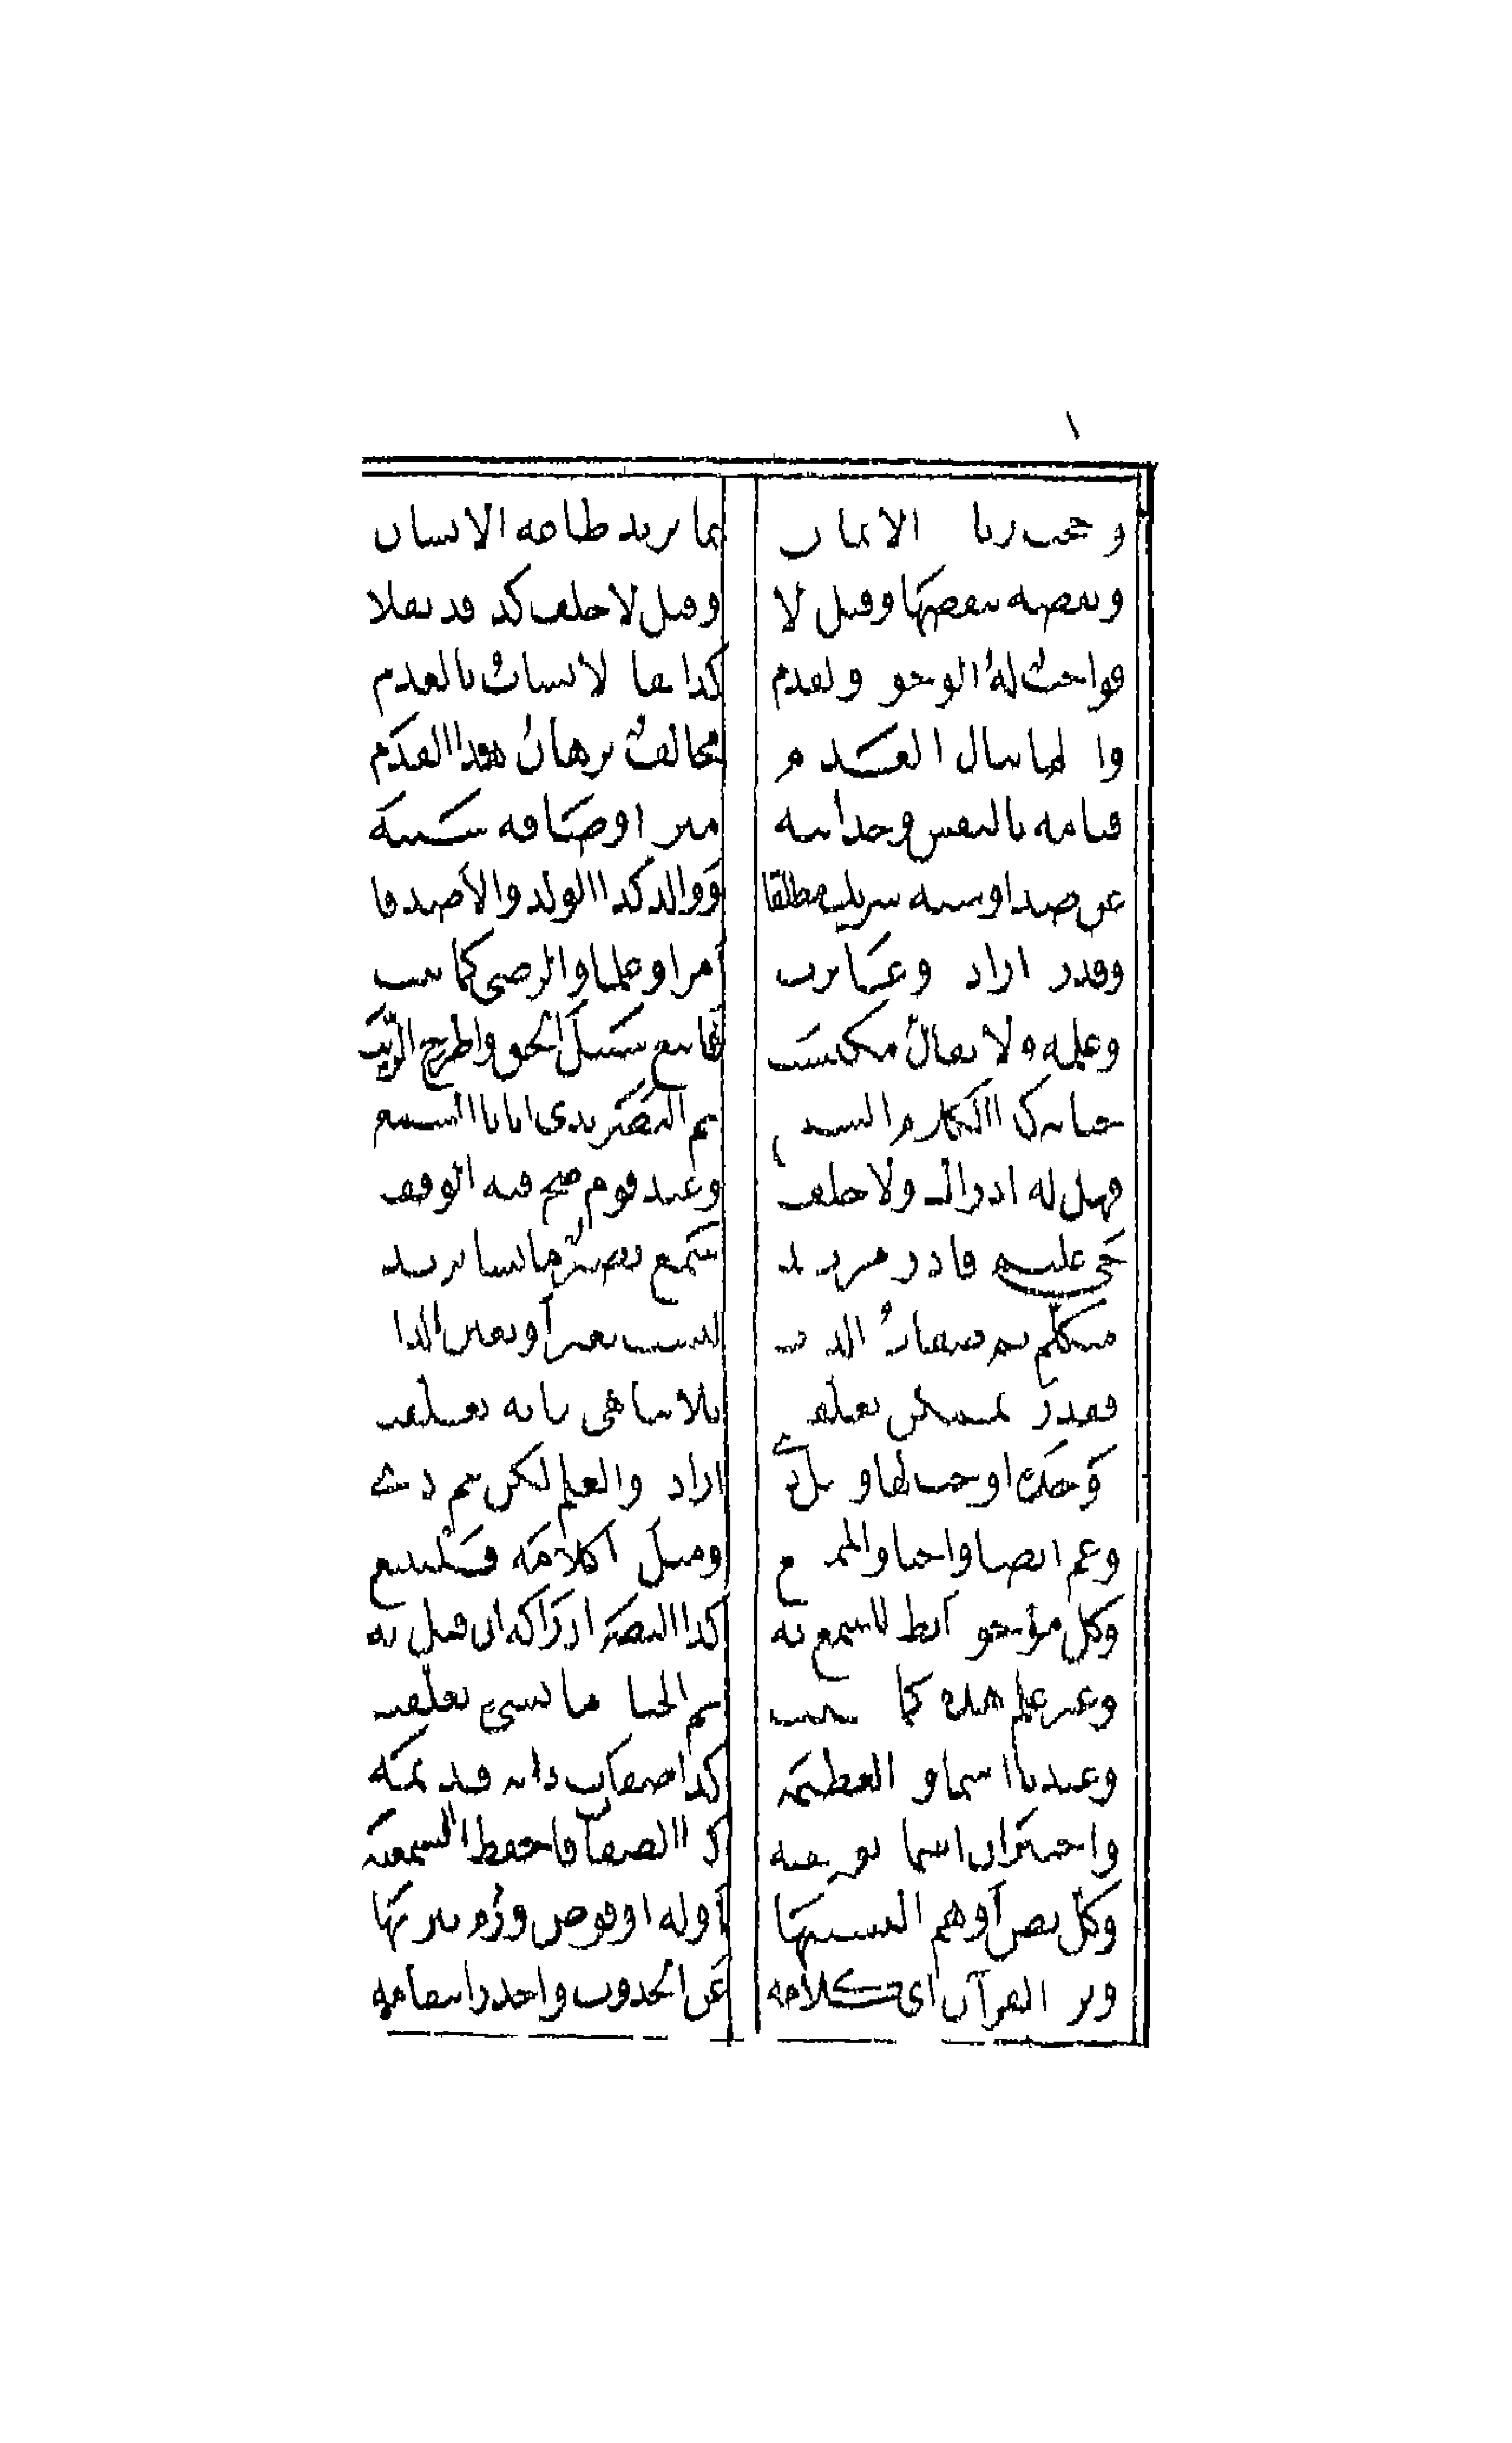 ١
ورجحت زيادة الايمان بما تزيد طاعة الانسان
ونقصه بنقصها وقيل لا وقيل لا خلف كذا قد نقلا
فواجبٌ له الوجود والقدم كذا بقا لا يشابُ بالعدم
وانه لما ينال العدم مخالفٌ برهانُ هذا القدم
قيامه بالنفس وحدانيه منزه اوصافه سنيه
عن ضد او شبه شريك مطلقا ووالد كذا الولد والاصدقا
وقدرة ارادة وغايرت أمرا وعلما والرضى كما ثبت
وعلمه ولا يقال مكتسب فاتبع سبيل الحق واطرح الريب
حياته كذا الكلام السمع ثم البصر بذي اتانا السمع
فهل له ادراك اولا خلف وعند قوم صح فيه الوقف
حي عليم قادر مريد سمع بصير ما يشا يريد
متكلم ثم صفاتُ الذات ليست بغير أو بعين الذات
فقدرة بممكن تعلقت بلا تناهي ما به تعلقت
ووحدة اوجب لها ومثل ذي ارادة والعلم لكن عم ذي
وعم ايضا واجبا والممتنع ومثل ذا كلامه فلنتبع
وكل موجود أنط للسمع به كذا البصر ادراكه ان قيل به
وغير علم هذه كما ثبت ثم الحياة ما بشيء تعلقت
وعندنا اسماؤه العظيمة كذا صفات ذاته قديمة
واختير ان اسماه توقيفيه كذا الصفات فاحفظ السمعيه
وكل نص أوهم التشبيها أوله او فوض ورُم تنزيها
ونزه القرآن اي كلامه عن الحدوث واحذر انتقامه